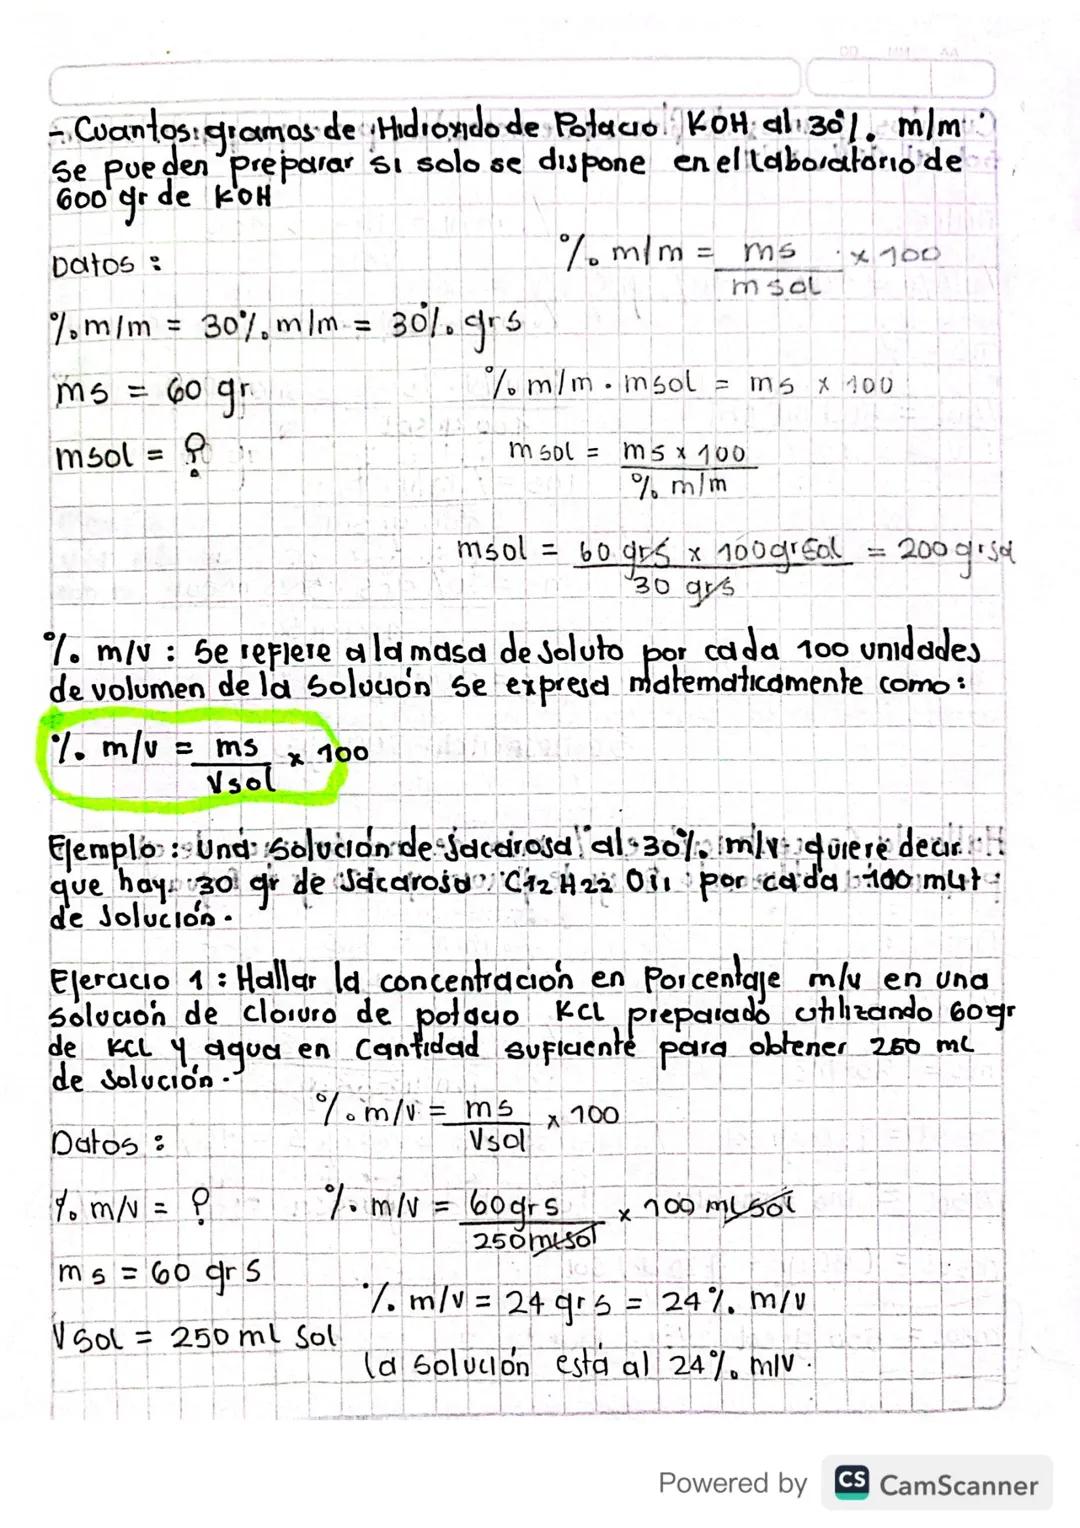 DD MM AA
- Cuantos gramos de Hidroxido de Potacio KOH al 30%. m/m
se pueden preparar si solo se dispone en el laboratorio de
600 gr de KOH
Datos :
%. m/m = ms x 100
msol
%. m/m = 30%. m/m = 30%. grs
ms = 60 gr.
%. m/m . msol = ms x 100
msol = ?
msol = ms x 100
%. m/m
msol = 60 grs x 100 gr sol = 200 gr sol
30 grs
%. m/v : Se refiere a la masa de soluto por cada 100 unidades
de volumen de la solución se expresa matematicamente como :
%. m/v = ms x 100
Vsol
Ejemplo : Una solución de sacarosa al 30%. m/v quiere decir
que hay 30 gr de sacarosa C12 H22 O11 por cada 100 mLt
de solución .
Ejercicio 1 : Hallar la concentración en Porcentaje m/v en una
solución de cloruro de potacio KCL preparado utilizando 60 gr
de KCL y agua en cantidad suficiente para obtener 250 mL
de solución .
%. m/v = ms x 100
Vsol
Datos :
%. m/v = ?
%. m/v = 60 grs x 100 mL sol
250 mL sol
ms = 60 grs
%. m/v = 24 grs = 24%. m/v
Vsol = 250 ml sol
la solución está al 24%. m/v .
Powered by CS CamScanner